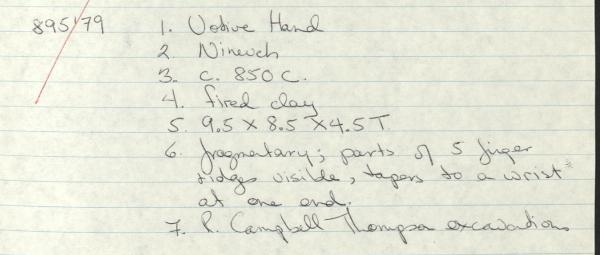 895'79 1. Votive Hand
2. Nineveh
3. c. 850 C.
4. fired clay
5. 9.5 X 8.5 X 4.5 T.
6. fragmentary; parts of 5 finger
ridges visible, tapers to a wrist
at one end.
7. R. Campbell Thompson excavations